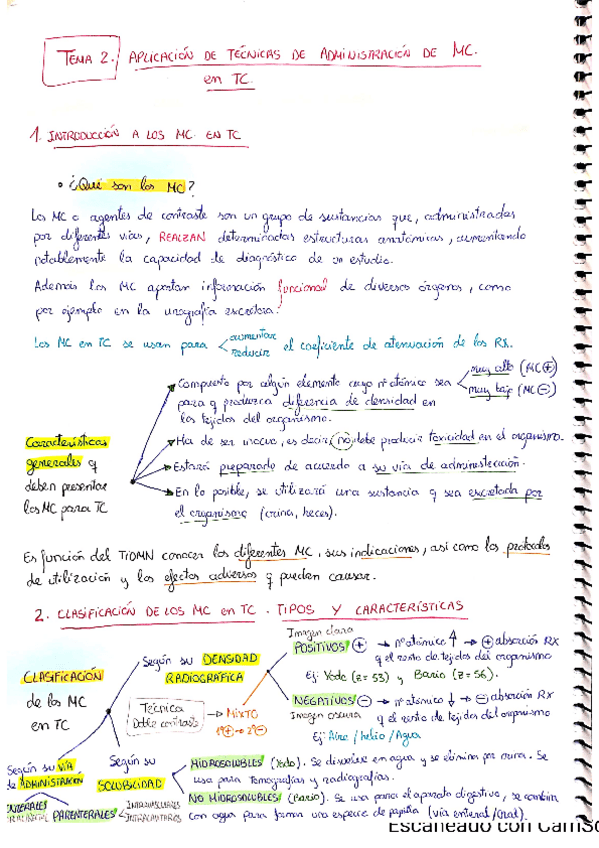 TEMA 2. APLICACIÓN DE TÉCNICAS DE ADMINISTRACIÓN DE MC.
en TC.
1. INTRODUCCIÓN A LOS MC EN TC
• ¿Qué son los MC?
Los MC o agentes de contraste son un grupo de sustancias que, administradas
por diferentes vías, REALZAN determinadas estructuras anatómicas, aumentando
notablemente la capacidad de diagnóstico de un estudio.
Además los MC aportan información funcional de diversos órganos, como
por ejemplo en la urografía excretora.
Los MC en TC se usan para aumentar
reducir el coeficiente de atenuación de los RX.
Características
generales q
deben presentar
los MC para TC
Compuesto por algún elemento cuyo nº atómico sea muy alto (MC+)
muy bajo (MC-)
para q produzca diferencia de densidad en
los tejidos del organismo.
Ha de ser inocuo, es decir, no debe producir toxicidad en el organismo.
Estará preparado de acuerdo a su vía de administración.
En lo posible, se utilizará una sustancia q sea excretada por
el organismo (orina, heces).
Es función del TIDMN conocer los diferentes MC, sus indicaciones, así como los protocolos
de utilización y los efectos adversos q pueden causar.
2. CLASIFICACIÓN DE LOS MC en TC. TIPOS Y CARACTERÍSTICAS
CLASIFICACIÓN
de los MC
en TC
Según su DENSIDAD
RADIOGRÁFICA
Imagen clara
POSITIVOS + → nº atómico ↑ → + absorción RX
q el resto de tejidos del organismo
Ej: Yodo (z=53) y Bario (z=56).
NEGATIVOS - → nº atómico ↓ → - absorción RX
Imagen oscura q el resto de tejidos del organismo
Ej: Aire / helio / Agua
Técnica
Doble contraste → MIXTO
1º+ → 2º-
Según su
SOLUBILIDAD
HIDROSOLUBLES (Yodo). Se disuelve en agua y se elimina por orina. Se
usa para tomografías y radiografías.
NO HIDROSOLUBLES (Bario). Se usa para el aparato digestivo, se combina
con agua para formar una especie de papilla (vía enteral/oral).
Según su vía
de ADMINISTRACIÓN
ENTERALES
PARENTERALES
INTRAVASCULARES
INTRACAVITARIOS
Escaneado con CamSc